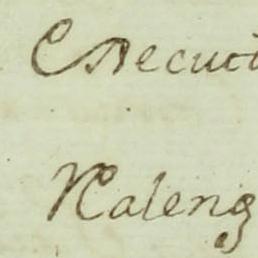 Executi
Kaleng